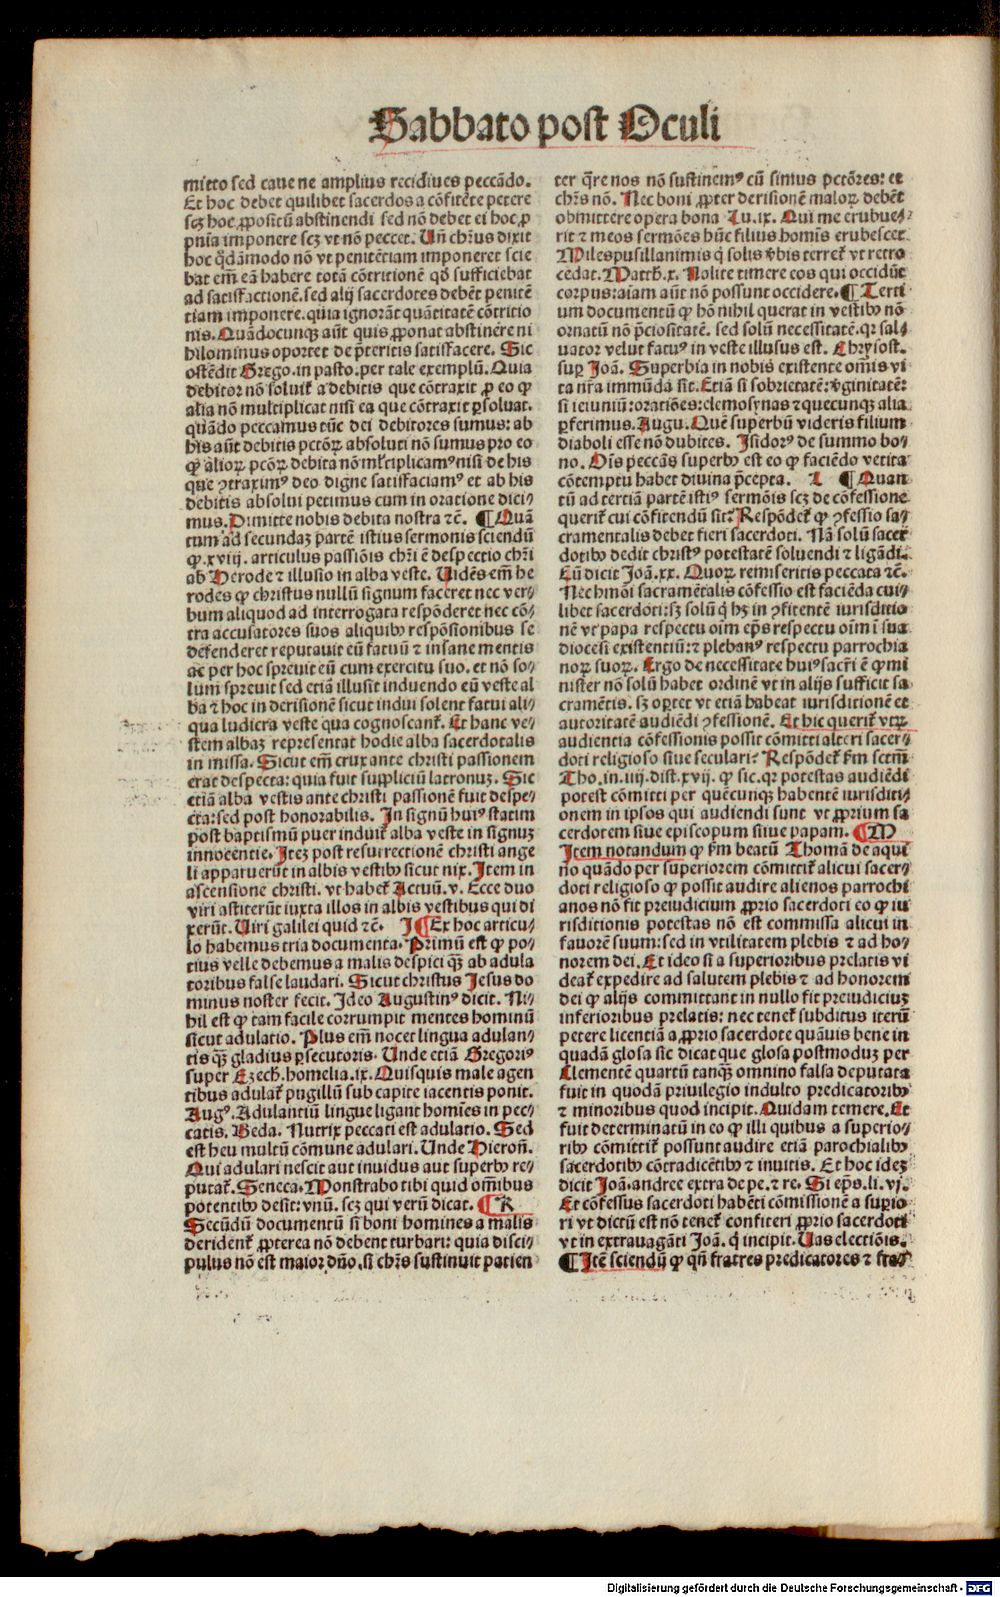 Sabbato post Oculi
mitto sed caue ne amplius recidiues peccādo.
Et hoc debet quilibet sacerdos a cōfitēte petere
scꝫ hoc ꝓpositū abstinendi sed nō debet ei hoc ꝓ
pnīa imponere scꝫ vt nō peccet. Uñ chr̄us dixit
hoc q̇dāmodo nō vt penitētiam imponeret scie
bat em̄ eā habere totā cōtritionē qd̕ sufficiebat
ad satisfactionē. sed alij sacerdotes debēt penitē
tiam imponere. quia ignorāt quātitatē cōtritio
nis. Quādocunqꝫ aūt quis ꝓponat abstinere ni
hilominus oportet de p̄teritis satisfacere. Sic
ostēdit Grego. in pasto. per tale exemplū. Quia
debitor nō soluit̕ a debitis que cōtraxit ꝓ eo ꝙ
alia nō multiplicat nisi ea que cōtraxit ꝑsoluat.
quādo peccamus tūc dei debitores sumus: ab
his aūt debitis pctōꝝ absoluti nō sumus pro eo
ꝙ alioꝝ pcōꝝ debita nō ml̕tiplicamꝰ nisi de his
que ꝯtraximꝰ deo digne satisfaciamꝰ et ab his
debitis absolui petimus cum in oratione dici
mus. Dimitte nobis debita nostra ⁊c̄. ¶ Quā
tum ad secundaꝫ partē istius sermonis sciendū
ꝙ .xviij. articulus passiōis chr̄i ē despectio chr̄i
ab Herode ⁊ illusio in alba veste. Uidēs em̄ he
rodes ꝙ christus nullū signum faceret nec ver⸗
bum aliquod ad interrogata respōderet nec cō⸗
tra accusatores suos aliquibꝰ respōsionibus se
defenderet reputauit eū fatuū ⁊ insane mentis
ac per hoc spreuit eū cum exercitu suo. et nō so⸗
lum spreuit sed etiā illusit induendo eū veste al
ba ⁊ hoc in derisionē sicut indui solent fatui ali⸗
qua ludicra veste qua cognoscant̕. Et hanc ve⸗
stem albaꝫ representat hodie alba sacerdotalis
in missa. Sicut em̄ crux ante christi passionem
erat despecta: quia fuit suppliciū latronuꝫ. Sic
etiā alba vestis ante christi passionē fuit despe⸗
cta: sed post honorabilis. In signū huiꝰ statim
post baptismū puer induit̕ alba veste in signuꝫ
innocentie. Iteꝫ post resurrectionē christi ange
li apparuerūt in albis vestibꝰ sicut nix. Item in
ascensione christi. vt habet̕ Actuū. v. Ecce duo
viri astiterūt iuxta illos in albis vestibus qui di
xerūt. Uiri galilei quid ⁊c̄. I ¶ Ex hoc articu⸗
lo habemus tria documenta. Primū est ꝙ po⸗
tius velle debemus a malis despici qꝫ̄ ab adula
toribus false laudari. Sicut christus Jesus do
minus noster fecit. Ideo Augustinꝰ dicit. Ni⸗
hil est ꝙ tam facile corrumpit mentes hominū
sicut adulatio. Plus em̄ nocet lingua adulan⸗
tis qꝫ̄ gladius ꝑsecutoris. Unde etiā Gregoriꝰ
super Ezech. homelia. ix. Quisquis male agen
tibus adulat̕ pugillū sub capite iacentis ponit.
Augꝰ. Adulantiū lingue ligant homīes in pec⸗
catis. Beda. Nutrix peccati est adulatio. Sed
est heu multū cōmune adulari. Unde Hieron̄.
Qui adulari nescit aut inuidus aut superbꝰ re⸗
putat̕. Seneca. Monstrabo tibi quid om̄ibus
potentibꝰ desit: vnū. scꝫ qui verū dicat. ¶ K
Secūdū documentū si boni homines a malis
derident̕ ꝓpterea nō debent turbari: quia disci⸗
pulus nō est maior dn̄o. si chr̄s sustinuit patien
ter q̄re nos nō sustinemꝰ cū simus pctōres: et
chr̄s nō. Nec boni ꝓpter derisionē maloꝝ debēt
obmittere opera bona Lu. ix. Qui me erubue⸗
rit ⁊ meos sermōes hūc filius homīs erubescet.
Miles pusillanimis q̇ solis v̕bis terret̕ vt retro
cedat. Matth. x. Nolite timere eos qui occidūt
corpus: aīam aūt nō possunt occidere. ¶ Terti
um documentū ꝙ hō nihil querat in vestibꝰ nō
ornatū nō p̄ciositatē. sed solū necessitatē. qꝛ sal⸗
uator velut fatuꝰ in veste illusus est. Chrysost.
suꝑ Joā. Superbia in nobis existente om̄is vi
ta nr̄a immūda sit. Etiā si sobrietatē: v̕ginitatē:
si ieiuniū: oratiōes: elemosynas ⁊ quecunqꝫ alia
ꝑferimus. Augu. Quē superbū videris filium
diaboli esse nō dubites. Isidorꝰ de summo bo⸗
no. Oīs peccās superbꝰ est eo ꝙ faciēdo vetita
cōtemptu habet divina p̄cepta. L ¶ Quan
tū ad tertiā partē istiꝰ sermōis scꝫ de cōfessione
querit̕ cui cōfitendū sit? Respōdet̕ ꝙ ꝯfessio sa⸗
cramentalis debet fieri sacerdoti. Nā solū sacer
dotibꝰ dedit christꝰ potestatē soluendi ⁊ ligādi.
Eū dicit Joā. xx. Quoꝝ remiseritis peccata ⁊c̄.
Nec hmōi sacramētalis cōfessio est faciēda cui⸗
libet sacerdoti: sꝫ solū q̇ hꝫ in ꝯfitentē iurisditio
nē vt papa respectu oīm ep̄s respectu oīm ī sua
diocesi existentiū: ⁊ plebanꝰ respectu parrochia
noꝝ suoꝝ. Ergo de necessitate huiꝰ sacr̄i ē ꝙ mi
nister nō solū habet ordinē vt in alijs sufficit sa
cramētis. sꝫ oꝑtet vt etiā habeat iurisditionē et
autoritatē audiēdi ꝯfessionē. Et hic querit̕ vtꝝ
audientia cōfessionis possit cōmitti alteri sacer⸗
doti religioso siue seculari? Respōdet̕ ẜm sctm̄
Tho. in. iiij. dist. xvij. ꝙ sic. qꝛ potestas audiēdi
potest cōmitti per quēcunqꝫ habentē iurisditi⸗
onem in ipsos qui audiendi sunt vt ꝓprium sa
cerdotem siue episcopum siue papam. ¶ M
Item notandum ꝙ ẜm beatū Thomā de aqui
no quādo per superiorem cōmittit̕ alicui sacer⸗
doti religioso ꝙ possit audire alienos parrochi
anos nō fit preiudicium ꝓprio sacerdoti eo ꝙ iu
risditionis potestas nō est commissa alicui in
fauorē suum: sed in vtilitatem plebis ⁊ ad ho⸗
norem dei. Et ideo si a superioribus prelatis vi
deat̕ expedire ad salutem plebis ⁊ ad honorem
dei ꝙ alijs committant in nullo fit preiudiciuꝫ
inferioribus prelatis: nec tenet̕ subditus iterū
petere licentiā a ꝓprio sacerdote quāuis bene in
quadā glosa sic dicat que glosa postmoduꝫ per
Clementē quartū tanqꝫ̄ omnino falsa deputata
fuit in quodā priuilegio indulto predicatoribꝰ
⁊ minoribus quod incipit. Quidam temere. Et
fuit determinatū in eo ꝙ illi quibus a superio⸗
ribꝰ cōmittit̕ possunt audire etiā parochialibꝰ
sacerdotibꝰ cōtradicētibꝰ ⁊ inuitis. Et hoc ideꝫ
dicit Joā. andree extra de pe. ⁊ re. Si ep̄s. li. vj.
Et cōfessus sacerdoti habēti cōmissionē a suꝑio
ri vt dictū est nō tenet̕ confiteri ꝓprio sacerdoti
vt in extrauagāti Joā. q̇ incipit. Uas electiōis.
¶ Itē sciendū ꝙ qn̄ fratres predicatores ⁊ fra⸗
Digitalisierung gefördert durch die Deutsche Forschungsgemeinschaft - DFG